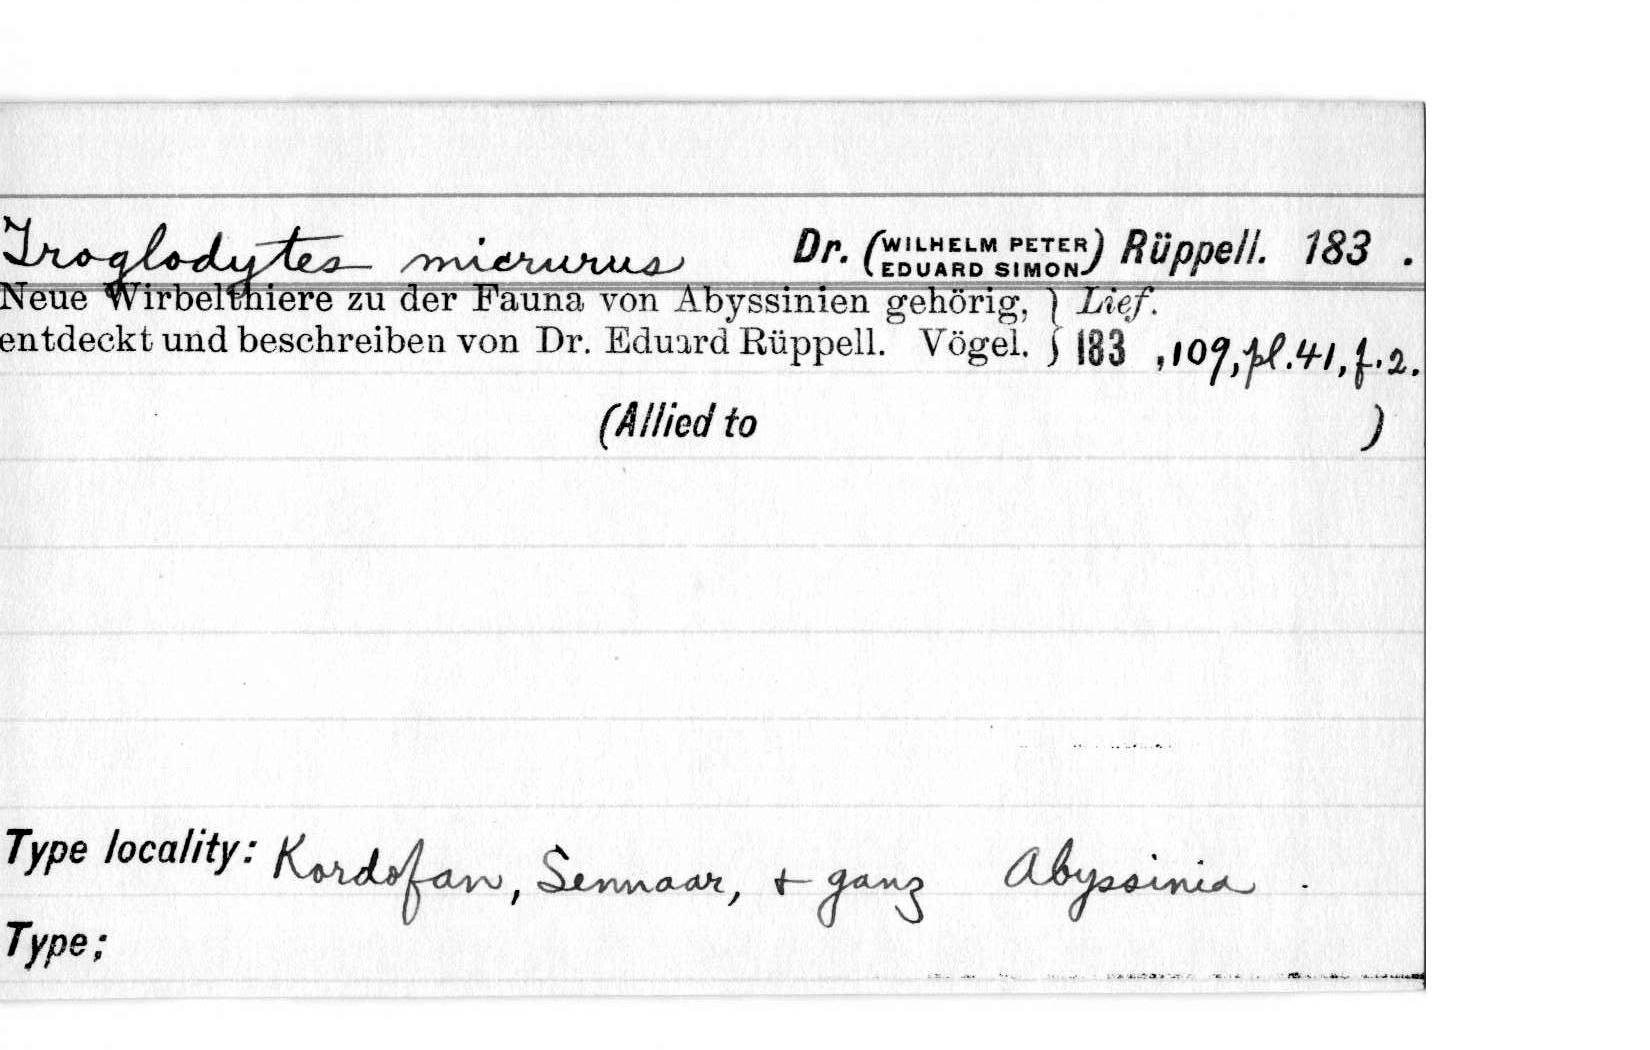 Troglodytes micrurus Dr. (WILHELM PETER EDUARD SIMON) Rüppell. 183 .
Neue Wirbelthiere zu der Fauna von Abyssinien gehörig, } Lief.
entdeckt und beschreiben von Dr. Eduard Rüppell. Vögel. } 183 ,109, pl.41, f.2.
(Allied to )
Type locality: Kordofan, Sennaar, + ganz Abyssinia .
Type;